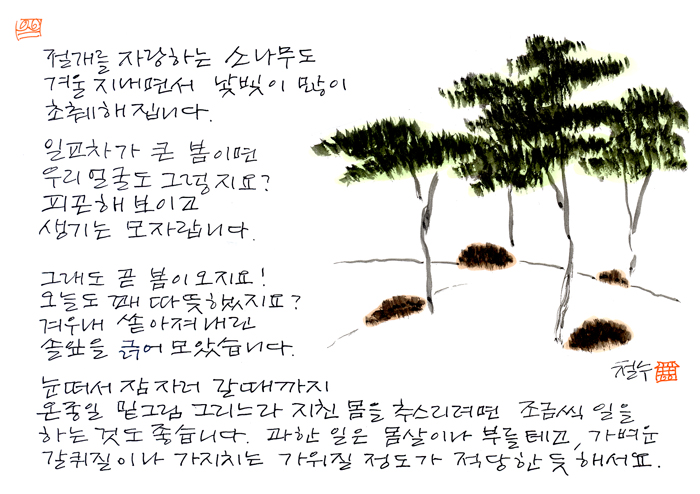 절개를 자랑하는 소나무도
겨울 지내면서 낯빛이 많이
초췌해집니다.
일교차가 큰 봄이면
우리 얼굴도 그렇지요?
피곤해 보이고
생기는 모자랍니다.
그래도 곧 봄이 오지요!
오늘도 꽤 따뜻했지요?
겨우내 쏟아져내린
솔잎을 긁어 모았습니다.
눈떠서 잠자러 갈 때까지
온종일 밑그림 그리느라 지친 몸을 추스리려면 조금씩 일을
하는 것도 좋습니다. 과한 일은 몸살이나 부를테고, 가벼운
갈퀴질이나 가지치는 가위질 정도가 적당한 듯 해서요.
철수